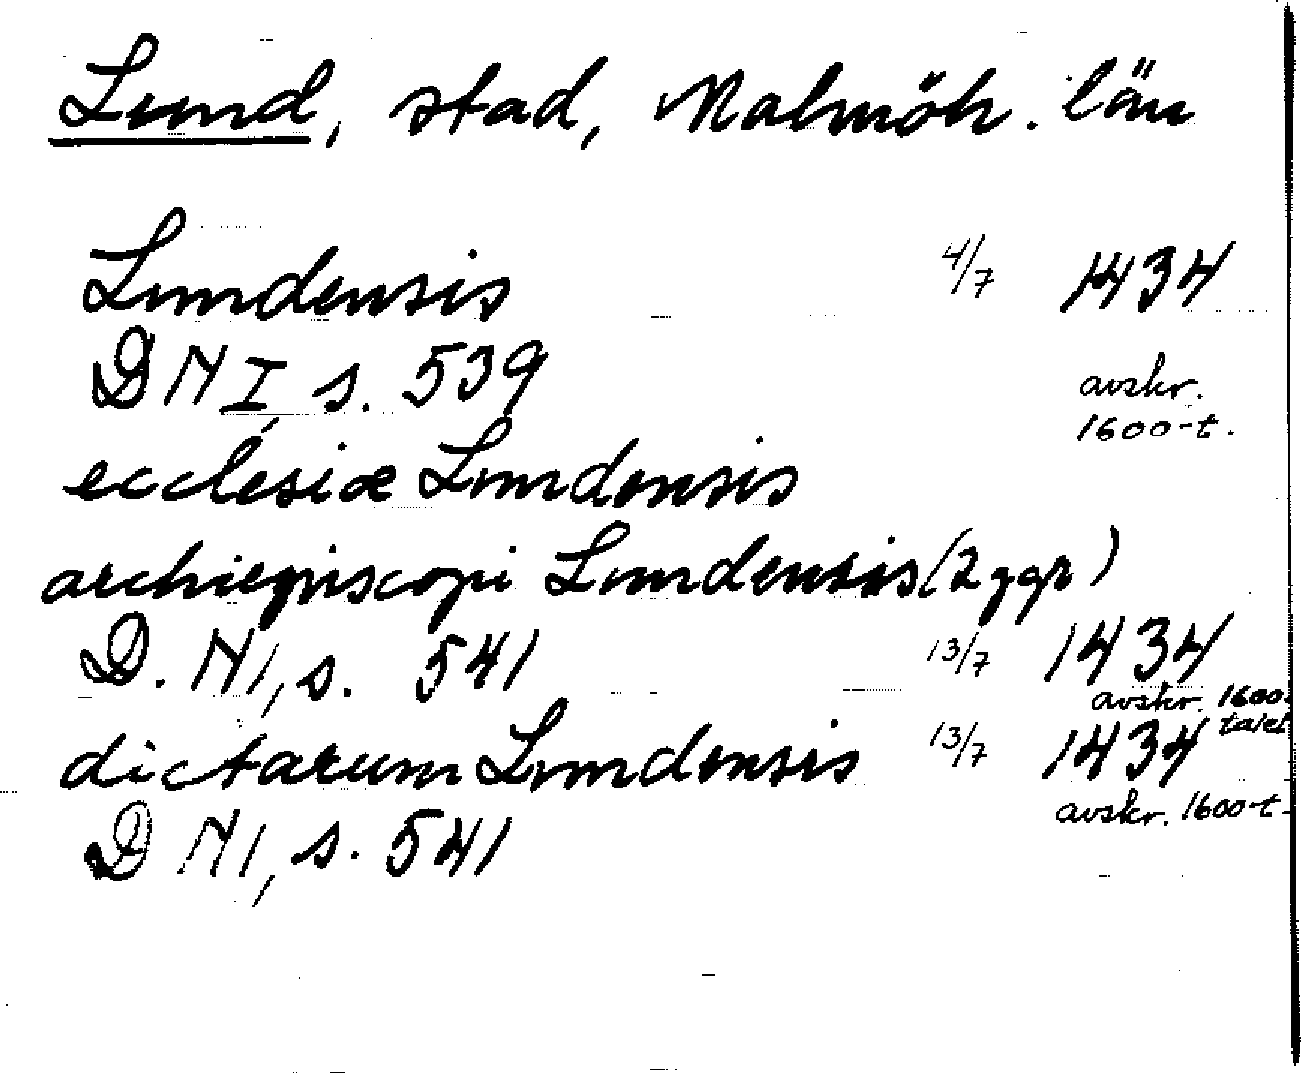 Lund, stad, Malmöh. län
Lundensis 4/7 1434
DN I, s. 539 avskr.
1600-t.
ecclesiæ Lundensis
archiepiscopi Lundensis (2 ggr)
D. N I, s. 541 13/7 1434
avskr. 1600-
talet
dictarum Lundensis 13/7 1434
avskr. 1600-t.
D N I, s. 541